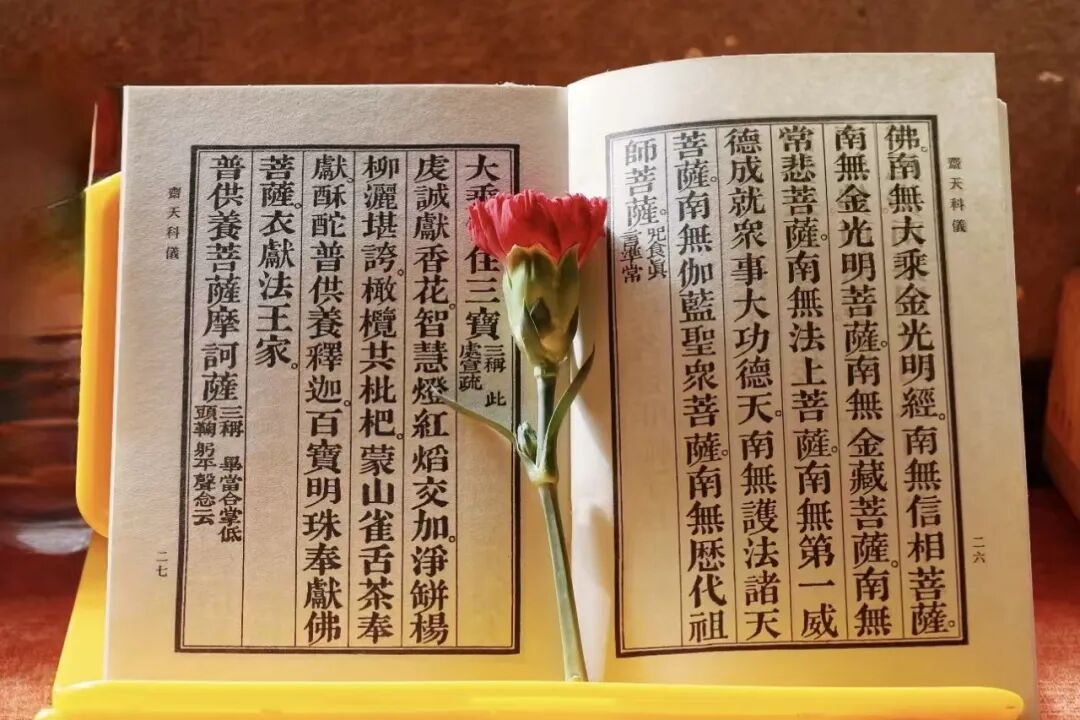 齋天科儀 二六
佛。南無大乘金光明經。南無信相菩薩。
南無金光明菩薩。南無金藏菩薩。南無
常悲菩薩。南無法上菩薩。南無第一威
德成就眾事大功德天。南無護法諸天
菩薩。南無伽藍聖眾菩薩。南無歷代祖
師菩薩。咒食眞
言準常
大住三寶三稱 此
處宣疏
虔誠獻香花。智慧燈紅焰交加。淨缾楊
柳灑堪誇。橄欖共枇杷。蒙山雀舌茶奉
獻酥酡普供養釋迦。百寶明珠奉獻佛
菩薩。衣獻法王家。
普供養菩薩摩訶薩三稱 畢當合掌低
頭鞠躬平聲念云
齋天科儀 二七